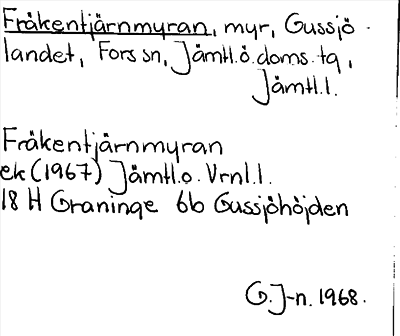 Fräkentjärnmyran, myr, Gussjö-
landet, Fors sn, Jämtl.ö.doms.tg,
Jämtl.l.
Fräkentjärnmyran
ek (1967) Jämtl.o. Vrnl.l.
18 H Graninge 6b Gussjöhöjden
G.J-n. 1968.